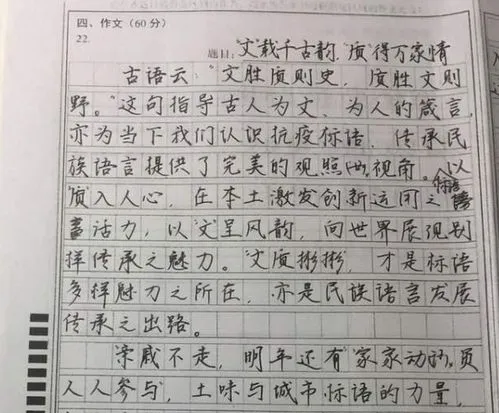 四、作文（60分）
22.
题目:“文”载千古韵,“质”得万家情
古语云：“文胜质则史，质胜文则
野。”这句指导古人为文、为人的箴言，
亦为当下我们认识抗疫标语，传承民
族语言提供了完美的观照视角。以
“质”入人心，在本土激发创新运用之标语
活力，以“文”呈风韵，向世界展现别
样传承之魅力。“文质彬彬，才是标语
多样魅力之所在，亦是民族语言发展
传承之出路。
亲戚不走，明年还有”家家动员
人人参与，土味与城市标语的力量，